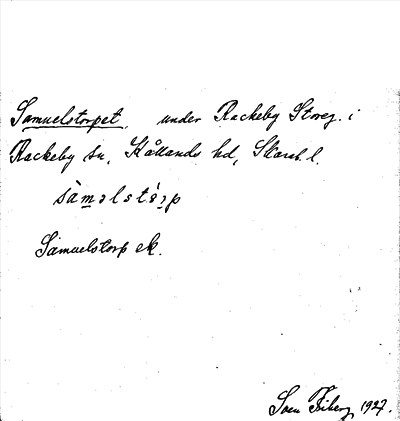 Samuelstorpet. under Rackeby Storeg. i
Rackeby sn, Kållands hd, Skarab. l.
sàməlstɜ́rp
Samuelstorp ek.
Sven Friberg 1927.